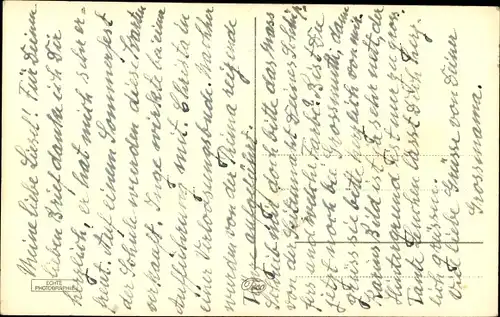 Meine liebe Liesl! Für Deinen
lieben Brief danke ich Dir
herzlich, er hat mich sehr er-
freut. Auf einem Sommerfest
der Schule wurden diese Karten
verkauft. Inge wirkte beim
Aufführung mit. Christa in
einer Verlosungsbude. Nachher
wurden von der Prima reizende
aufgeführt.
Schreibt dort bitte das was
von der Seite Deines
für und welche Farbe? Bist Du
jetzt noch bei Grossmutti, dann
grüsse sie bitte herzlich von mir.
Karins Bild ist sehr nett, der
Hintergrund fast nur zu gross.
Tante Lenchen lässt Dich herz-
lich grüssen.
Viele liebe Grüsse von Deiner
Grossmama.
ECHTE
PHOTOGRAPHIE